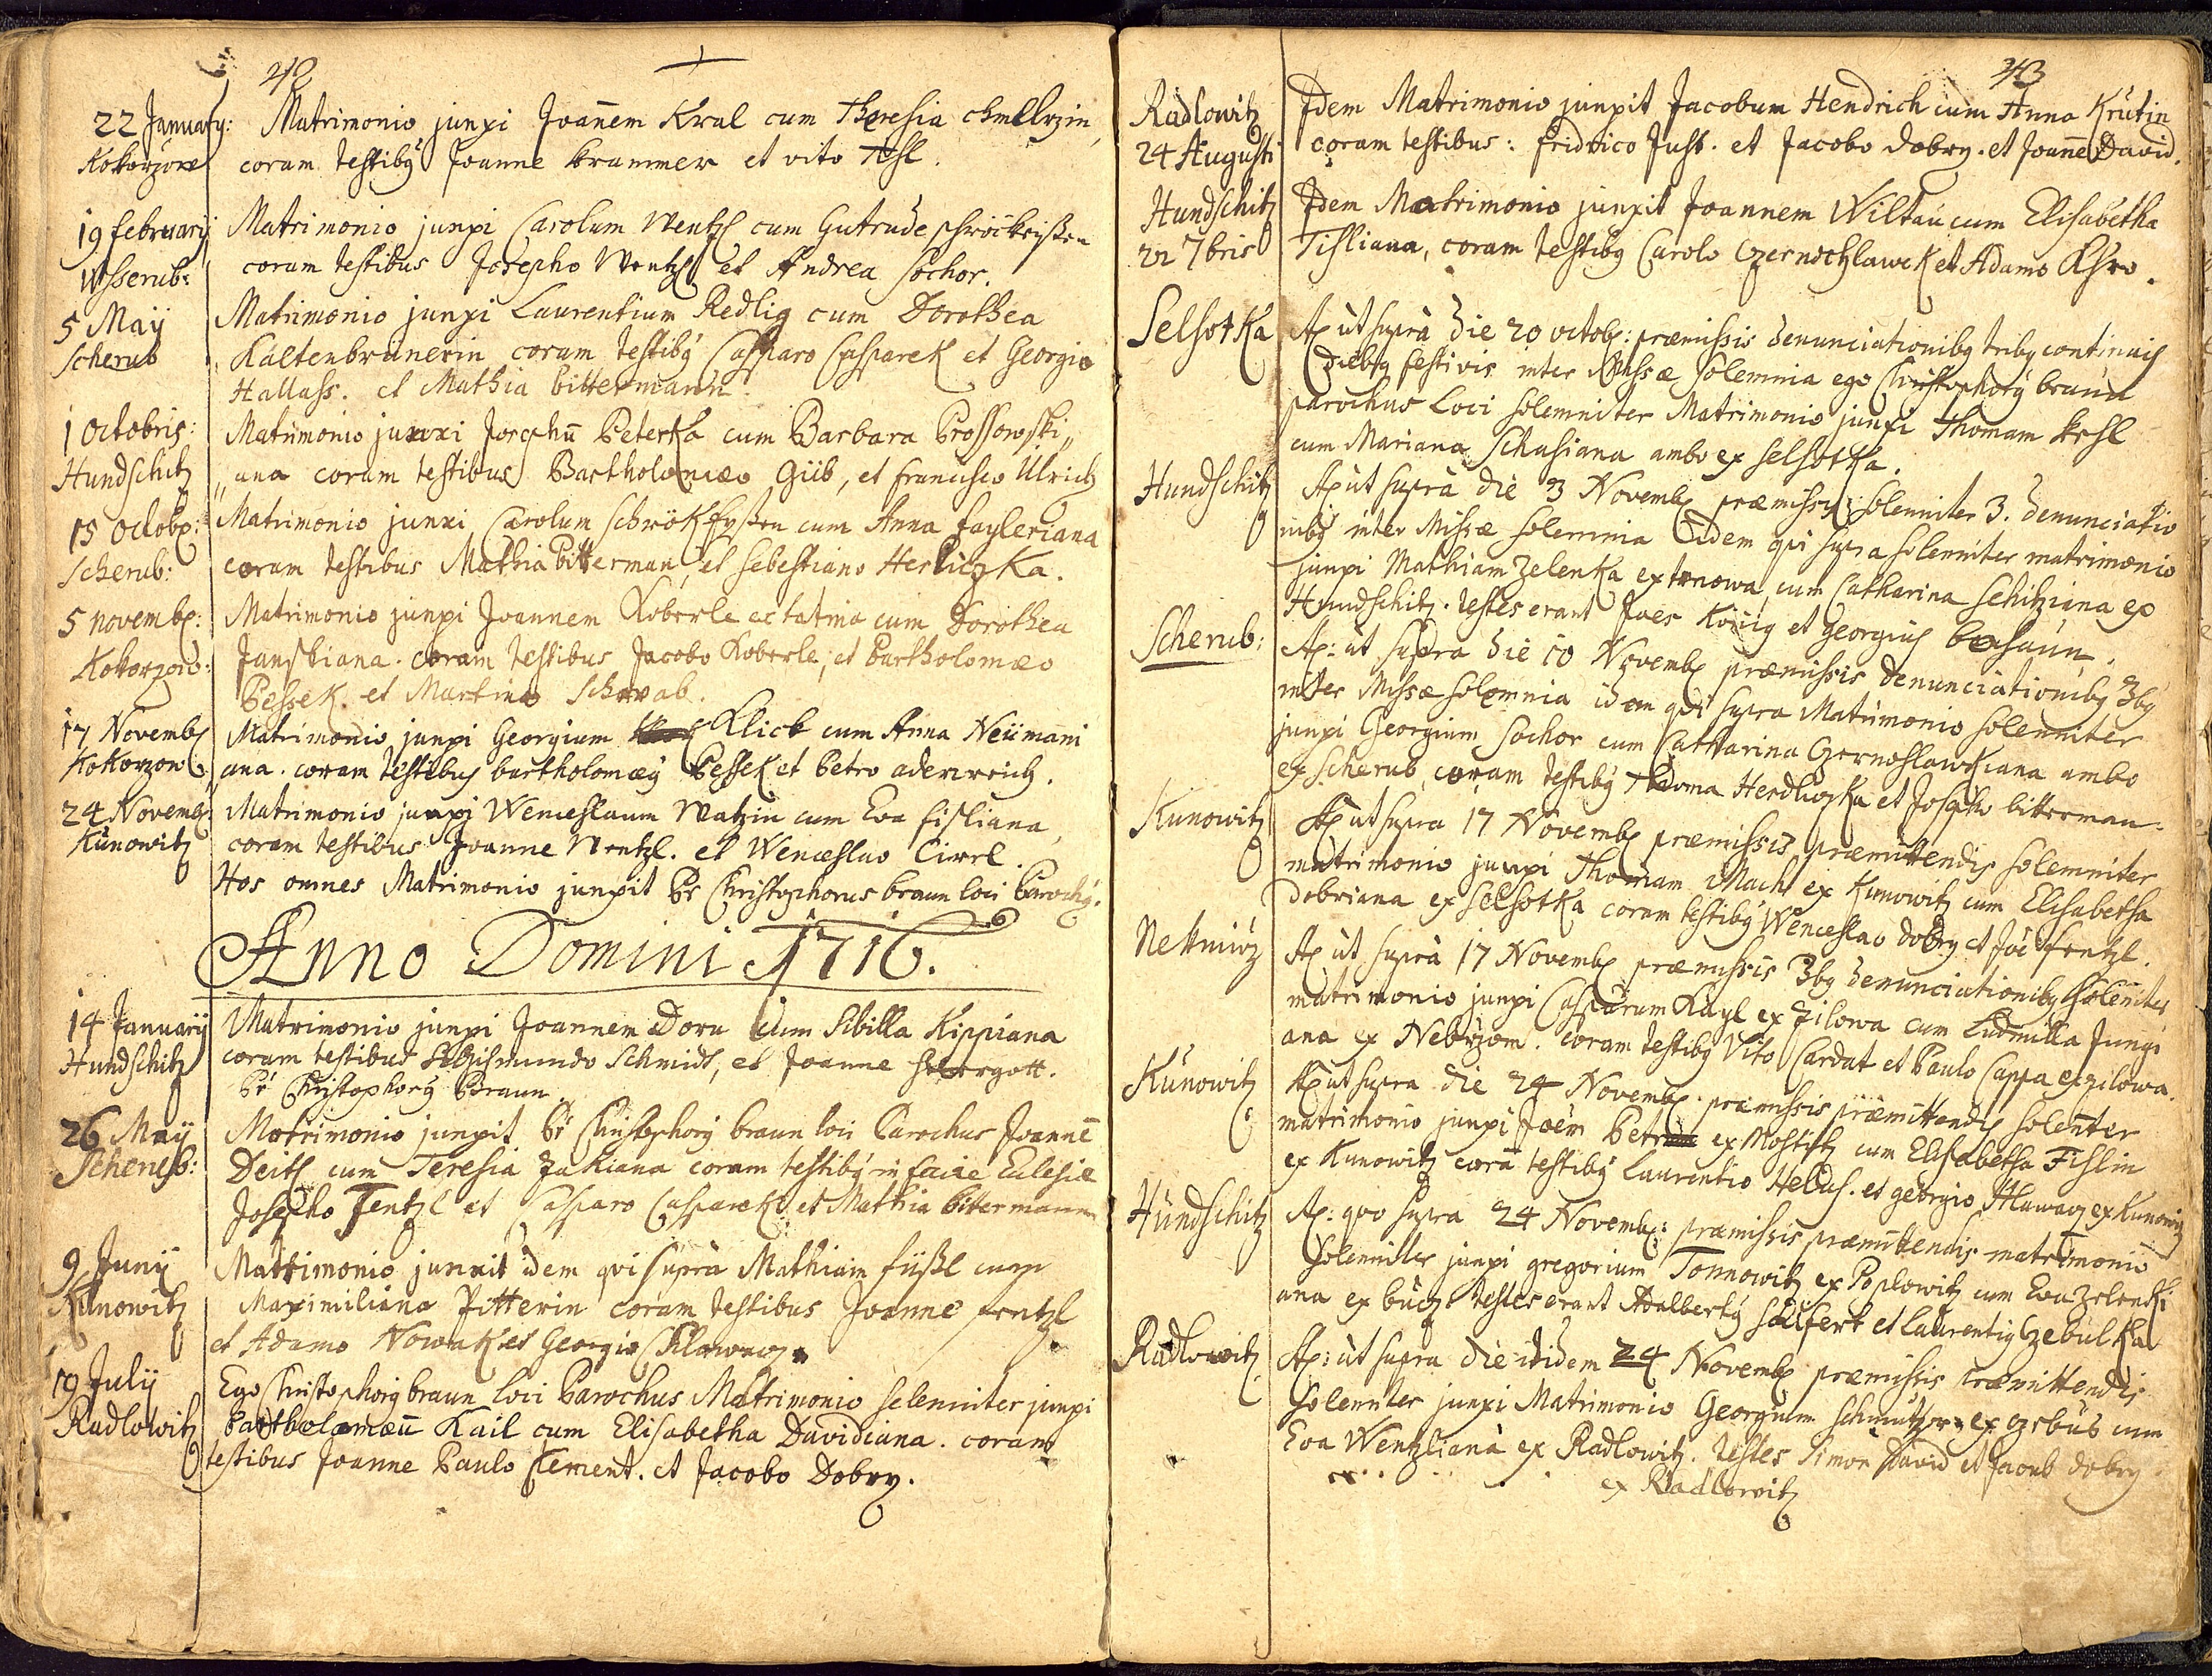 42
22 January: Matrimonio junxi Joan̄em Kral cum Theresia
Kokorzow coram testibꝰ Joanne brammer et vito Tesl.
19 february Matrimonio junxi Carolum Wentzl cum Gutrude
Wsserub: coram testibus Josepho Wentzl et Andrea sochor.
5 Maÿ Matrimonio junxi Laurentium Redlig cum Dorothea
Scherub Kaltenbrunerin coram testibꝰ Casparo Casparek et Georgio
Hallass. et Mathia bittermann
1 Octobris: Matrimonio junxi Josephū Peterka cum Barbara Prossowski„
Hundschitz „ana coram testibus Bartholomæo Giib, et francisco Ulrich
15 Octobr: Matrimonio junxi Carolum cum Anna fayleriana
Scherub: coram testibus Mathia Bitterman, et sebestiano Herliczka.
5 novembr: Matrimonio junxi Joannem Koberle cum Dorothea
Kokorzow: Janskiana. coram testibus Jacobo Koberle, et Bartholomæo
Pessek. et Martino Schwab.
17 Novembr Matrimonio junxi Georgium Klick cum Anna Neümani
Kokorzow ana. coram testibus bartholomæÿ Pessek et Petro
24 Novembr Matrimonio junxi Wenceslaum Watzin cum Eva fisliana
Kunowitz coram testibus Joanne Wentzl. et Wenceslao
Hos omnes Matrimonio junxit Pr Christophorus braun loci Parochꝰ.
Anno Domini 1716.
14 Januarÿ Matrimonio junxi Joannem Doru cum Sibilla Kippiana
Hundschitz coram testibus Schmidt, et Joanne
Pr Christophorꝰ Braun
26 Maÿ Matrimonio junxit Pr Christophorꝰ braun loci Parochus Joannē
Scherub: Deitl cum Teresia Zakiana coram testibꝰ in facie Eclesiæ
Josepho Fentzl et Casparo Casparek et Mathia bittermann
9 Junÿ Matrimonio junxit idem qvi suprà Mathiam füssl cum
Kunowitz Maximiliana Pitterin coram testibus Joanne fentzl
et Adamo Nowak et Georgio
19 Julÿ Ego Christophorꝰ braun loci Parochus Matrimonio solemniter junxi
Radlowitz Bartholomæū Kail cum Elisabetha Davidiana. coram
testibus Joanne Paulo Clement. et Jacobo Dobry.
43
Radlowitz Idem Matrimonio junxit Jacobum Hendrich cum Anna Krutin
24 Augusti coram testibus: fridrico Just. et Jacobo dobry. et Joannē David.
Hundschitz Idem Matrimonio junxit Joannem Wiltau cum Elisabetha
7bris Tisliana, coram testibꝰ Carolo Czernochlawek et Adamo
Selsotka Ao ùt suprà die 20 octob: præmissis denunciationibꝰ tribꝰ continuis
diebꝰ festivis inter Missæ solemnia ego Christophorꝰ braun
parochus Loci solemniter Matrimonio junxi Thomam
cum Mariana Schusiana ambo ex selsotka.
Hundschitz Ao ùt suprà die 3 Novemb præmissis solemniter 3. denunciatio
nibꝰ inter Missæ solemnia idem qvi supra solemniter matrimonio
junxi Mathiam Zelenka ex trnowa, cum Catharina Schitziana ex
Hundschitz. testes erant Joes König et Georgius
Scherub: Ao: ùt supra die 10 Novemb præmissis denunciationibꝰ 3bꝰ
inter Missæ solemnia idem qvi supra Matrimonio solemniter
junxi Georgium Sochor cum Catharina Czernoslawkiana ambo
ex scherub, coram testibꝰ Thoma Herdliczka et Josepho bitterman.
Kunowitz Ao ut supra 17 Novemb præmissis præmittendis solemniter
matrimonio junxi Thomam Mach ex Kunowitz cum Elisabetha
dobriana ex Selsotka coram testibꝰ Wenceslao dobry et Joē fentzl.
Nettmirz Ao ùt suprà 17 Novemb præmissis 3bꝰ denunciationibꝰ solemniter
matrimonio junxi Casparum Kayl ex Zilowa cum Ludmilla Jungi
ana ex Nebrzom. coram testibꝰ Vito Cardat et Paulo Cappa ex Zilowa.
Kunowitz Ao ut supra die 24 Novemb. præmissis præmittendis solenñter
matrimonio junxi Joēm ex Mostitz cum Elisabetha Fislin
ex Kunowitz corā testibꝰ Laurentio et georgio ex Kunowitz
Hundschitz Ao: qvo supra 24 Novemb: præmissis præmittendis matrimonio
solenniter junxi gregorium Tonnowitz ex Poplowitz cum Eva Zelenki
ana ex testes erant Adalbertꝰ et laurentiꝰ Czebulka
Radlowitz Ao: ùt supra die itidem 24 Novemb præmissis præmittendis
solenniter junxi Matrimonio Georgium ex cum
Eva Wentzliana ex Radlowitz. testes Simon David et Jacob dobry
ex Radlowitz